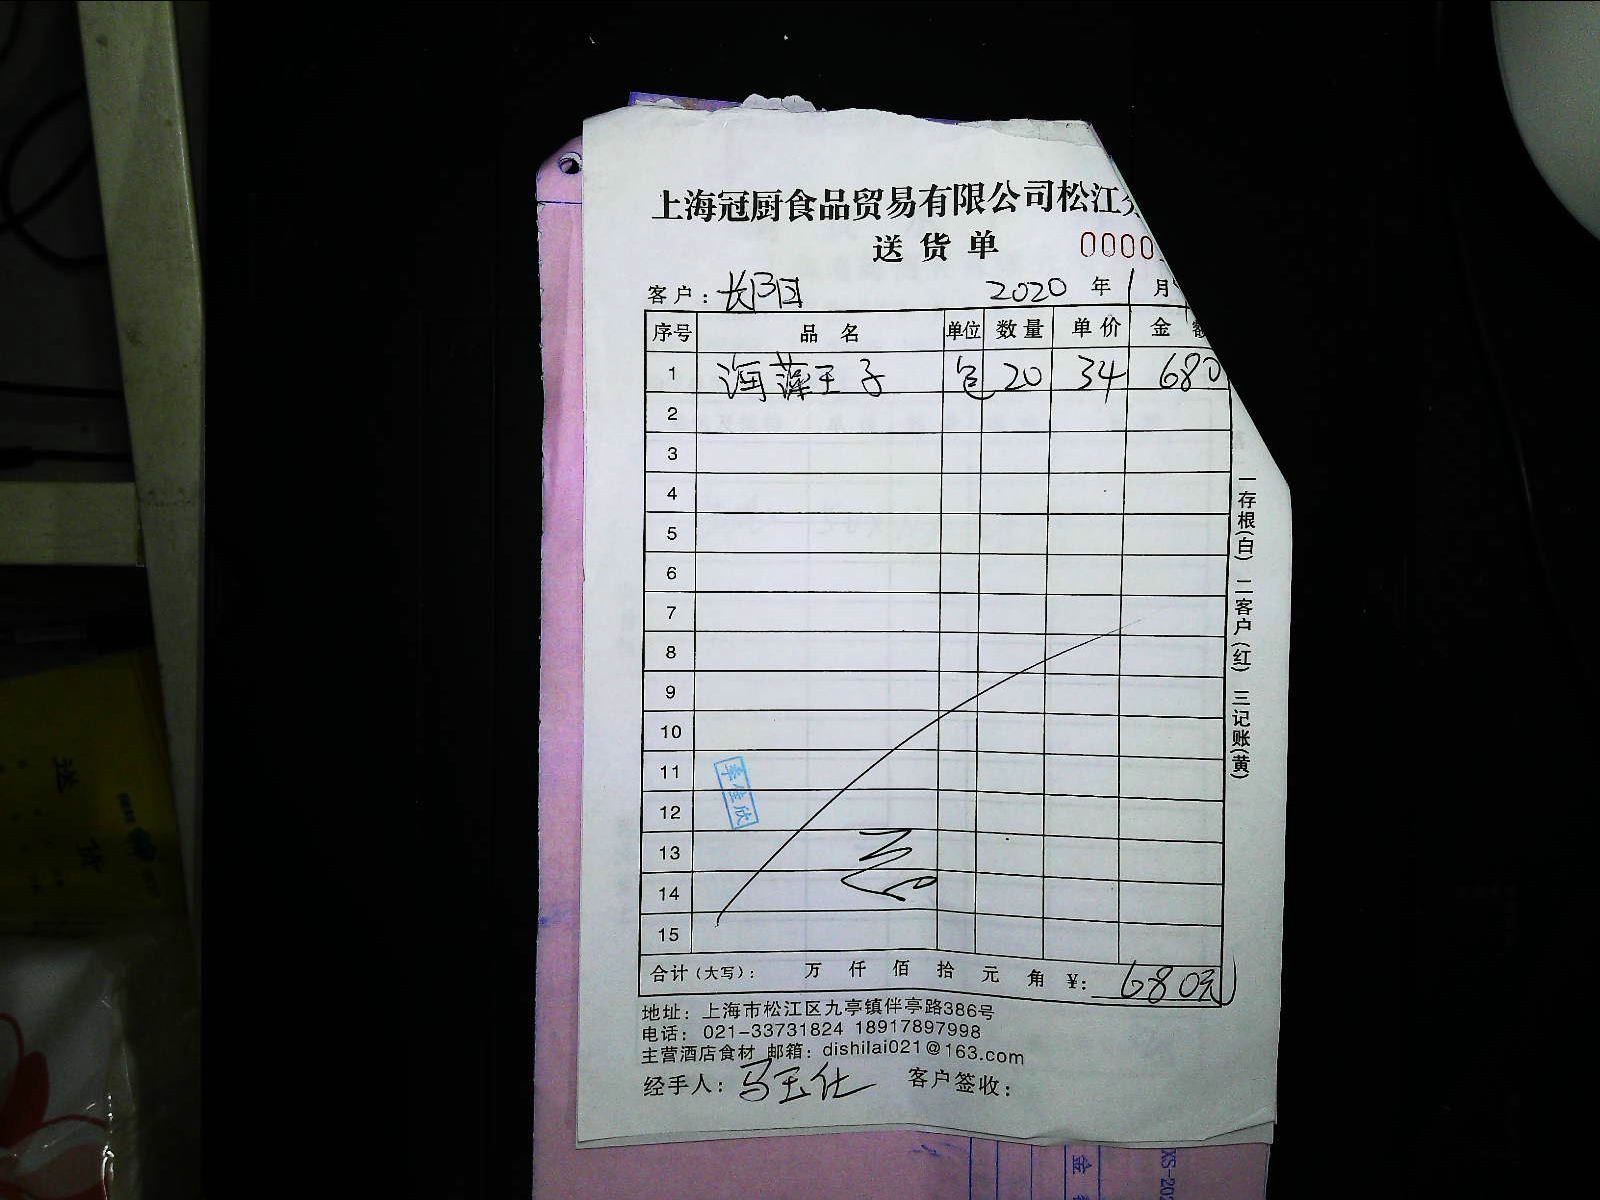 上海冠厨食品贸易有限公司松江
送货单 0000
客户: 2020 年 1 月
序号 品名 单位 数量 单价 金额
1 海藻王子 包 20 34 680
2
3
4
5
6
7
8
9
10
11
12
13
14
15
合计(大写): 万 仟 佰 拾 元 角 ¥: 680元
地址: 上海市松江区九亭镇伴亭路386号
电话: 021-33731824 18917897998
主营酒店食材 邮箱: dishilai021@163.com
经手人: 马玉仕 客户签收:
一存根(白) 二客户(红) 三记账(黄)
李佳欣
金
XS-20
送货